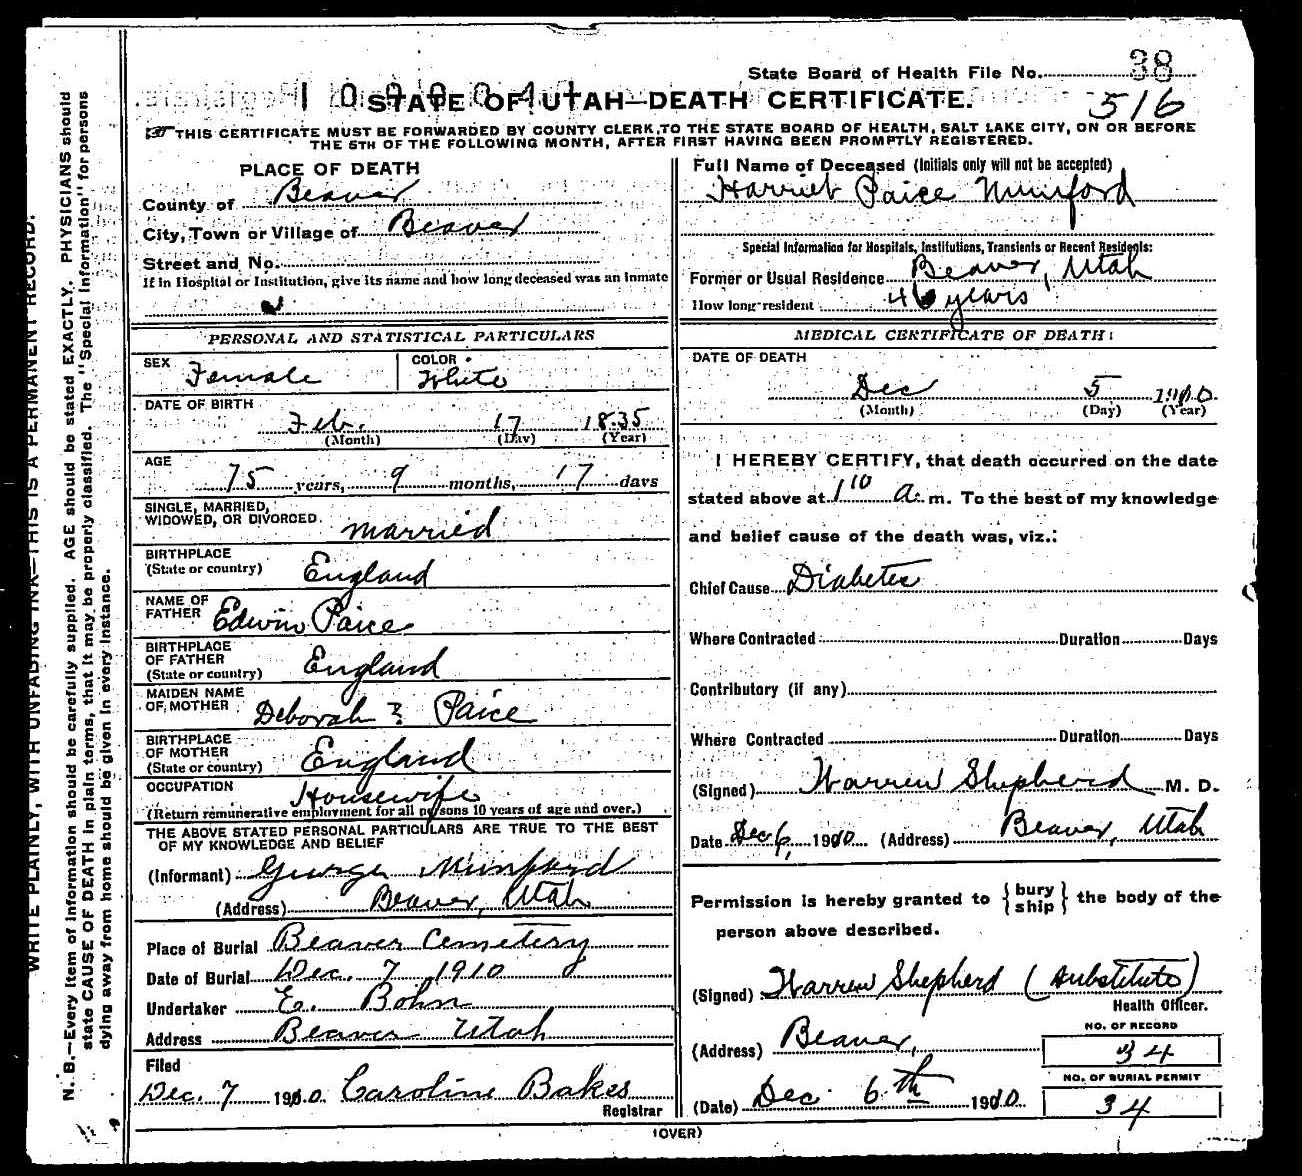 State Board of Health File No. 38
1090041
STATE OF UTAH—DEATH CERTIFICATE.
516
THIS CERTIFICATE MUST BE FORWARDED BY COUNTY CLERK, TO THE STATE BOARD OF HEALTH, SALT LAKE CITY, ON OR BEFORE
THE 5TH OF THE FOLLOWING MONTH, AFTER FIRST HAVING BEEN PROMPTLY REGISTERED.
PLACE OF DEATH
County of Beaver
City, Town or Village of Beaver
Street and No.
If in Hospital or Institution, give its name and how long deceased was an inmate
PERSONAL AND STATISTICAL PARTICULARS
SEX Female COLOR White
DATE OF BIRTH
Feb. 17 1835
(Month) (Day) (Year)
AGE
75 years, 9 months, 17 days
SINGLE, MARRIED,
WIDOWED, OR DIVORCED. Married
BIRTHPLACE
(State or country) England
NAME OF
FATHER Edwin Paice
BIRTHPLACE
OF FATHER
(State or country) England
MAIDEN NAME
OF MOTHER Deborah ? Paice
BIRTHPLACE
OF MOTHER
(State or country) England
OCCUPATION Housewife
(Return remunerative employment for all persons 10 years of age and over.)
THE ABOVE STATED PERSONAL PARTICULARS ARE TRUE TO THE BEST
OF MY KNOWLEDGE AND BELIEF
(Informant) George Mumford
(Address) Beaver, Utah
Place of Burial Beaver Cemetery
Date of Burial Dec. 7 1910
Undertaker E. Bohn
Address Beaver Utah
Filed
Dec. 7 1910. Caroline Bakes
Registrar
Full Name of Deceased (Initials only will not be accepted)
Harriet Paice Mumford
Special Information for Hospitals, Institutions, Transients or Recent Residents:
Former or Usual Residence Beaver, Utah
How long resident 46 years
MEDICAL CERTIFICATE OF DEATH:
DATE OF DEATH
Dec 5 1910.
(Month) (Day) (Year)
I HEREBY CERTIFY, that death occurred on the date
stated above at 1 10 a. m. To the best of my knowledge
and belief cause of the death was, viz.:
Chief Cause Diabetes
Where Contracted Duration Days
Contributory (if any)
Where Contracted Duration Days
(Signed) Warren Shepherd M. D.
Date Dec 6, 1910. (Address) Beaver, Utah
Permission is hereby granted to { bury ship } the body of the
person above described.
(Signed) Warren Shepherd (Substitute)
Health Officer.
(Address) Beaver,
NO. OF RECORD
34
NO. OF BURIAL PERMIT
34
(Date) Dec. 6th 1910.
(OVER)
WRITE PLAINLY, WITH UNFADING INK—THIS IS A PERMANENT RECORD.
N. B.—Every item of information should be carefully supplied. AGE should be stated EXACTLY. PHYSICIANS should
state CAUSE OF DEATH in plain terms, that it may be properly classified. The "Special Information" for persons
dying away from home should be given in every instance.